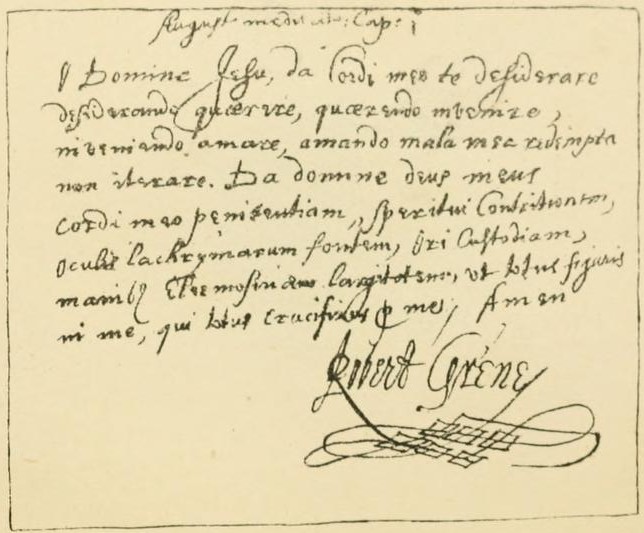 August meditat: Cap: i
O Domine Jesu, da Cordi meo te desiderare
desiderando quærere, quærendo invenire,
inveniendo amare, amando mala mea redempta
non iterare. Da domine deus meus
Cordi meo penitentiam, speritui Contritionem,
oculis lachrymarum fontem, Ori Custodiam,
manibꝫ Eleemosinæ largitatem, ut totus figaris
in me, qui totus Crucifixus ꝑ me, Amen
Robert Grene